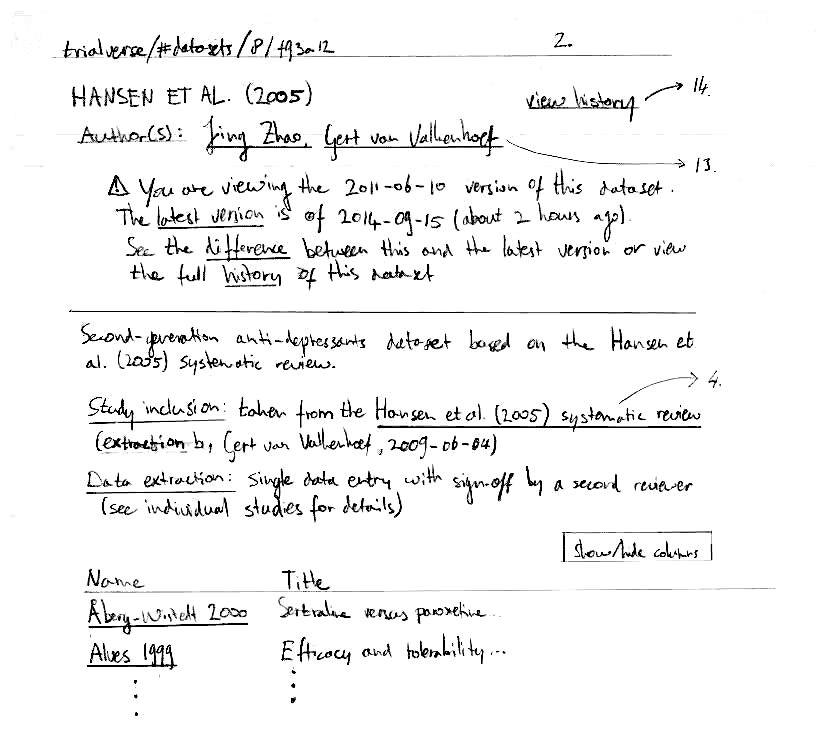 trialverse/#datasets/8/f93a12 2.
HANSEN ET AL. (2005) view history → 14.
Author(s): Jing Zhao, Gert van Valkenhoef → 13.
⚠ You are viewing the 2011-06-10 version of this dataset.
The latest version is of 2014-09-15 (about 2 hours ago).
See the difference between this and the latest version or view
the full history of this dataset
Second-generation anti-depressants dataset based on the Hansen et
al. (2005) systematic review.
→ 4.
Study inclusion: taken from the Hansen et al. (2005) systematic review
(extraction by Gert van Valkenhoef, 2009-06-04)
Data extraction: Single data entry with sign-off by a second reviewer
(see individual studies for details)
Show/hide columns
Name Title
Åberg-Wistedt 2000 Sertraline versus paroxetine...
Alves 1999 Efficacy and tolerability...